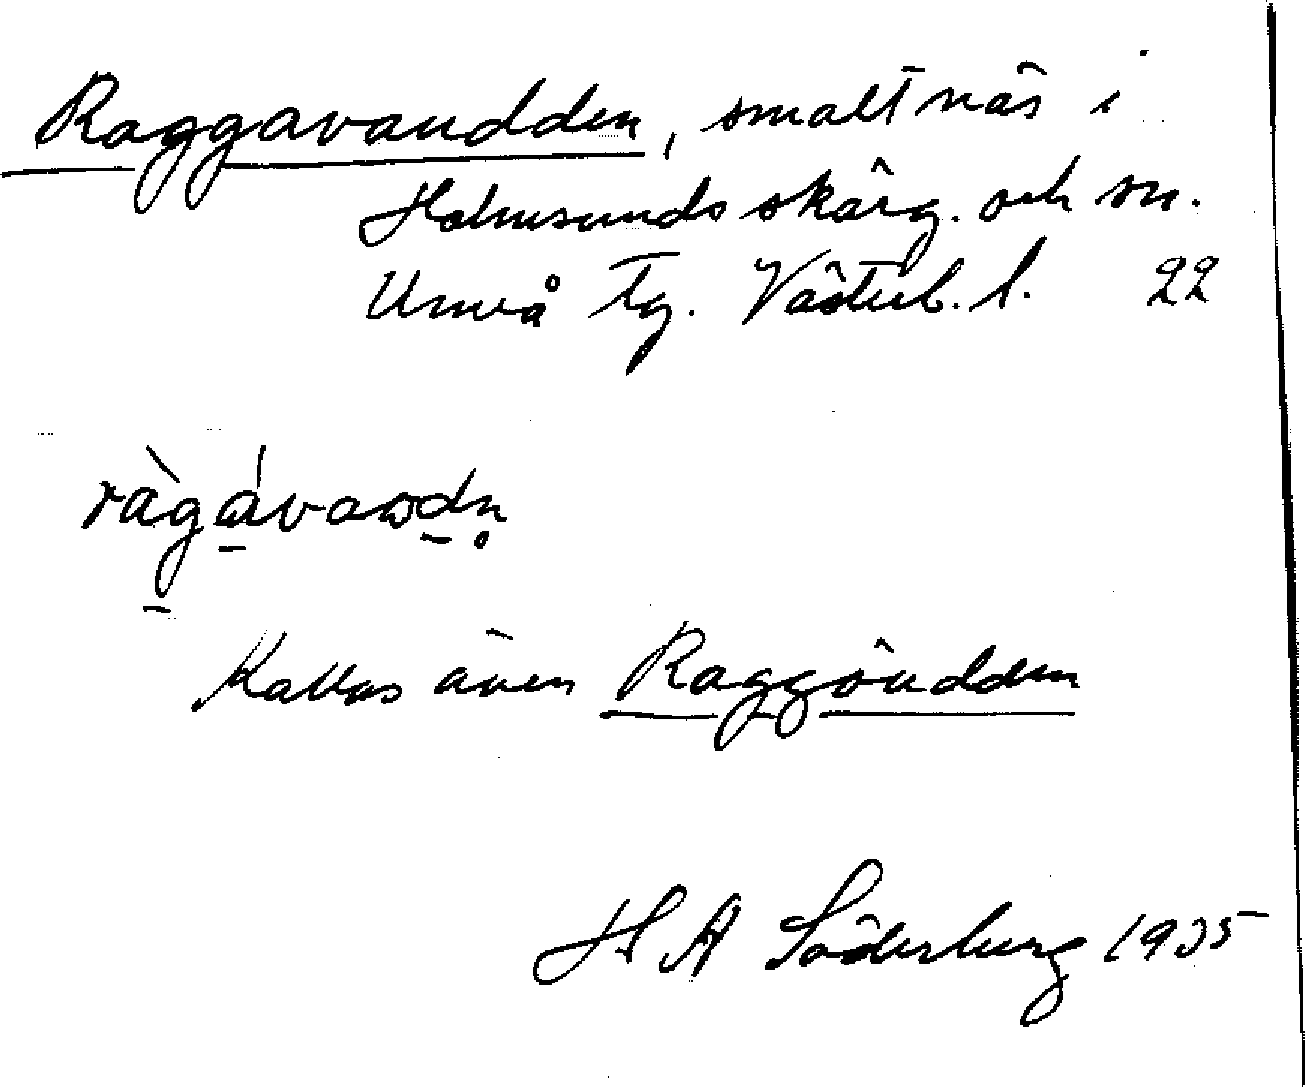 Raggavaudden, smalt näs i
Holmsunds skärg. och sn.
Umeå tg. Västerb. l. 22
Kallas även Raggöudden
H A Söderberg 1935